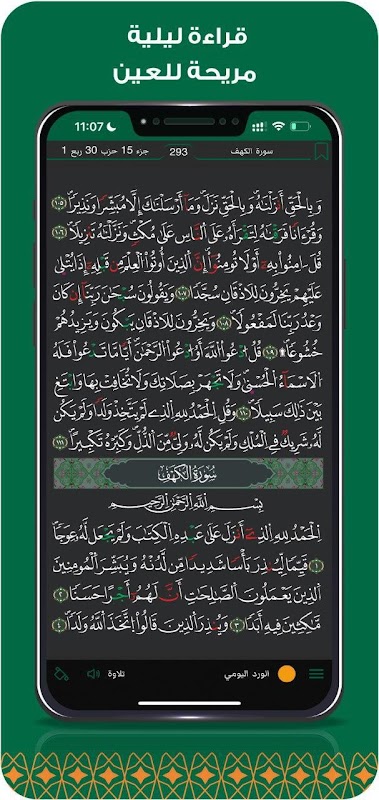 قراءة ليلية
مريحة للعين
11:07
سورة الكهف 293 جزء 15 حزب 30 ربع 1
وَبِالْحَقِّ أَنزَلْنَٰهُ وَبِالْحَقِّ نَزَلَ وَمَا أَرْسَلْنَٰكَ إِلَّا مُبَشِّرًا وَنَذِيرًا ١٠٥
وَقُرْءَانًا فَرَقْنَٰهُ لِتَقْرَأَهُۥ عَلَى اَلنَّاسِ عَلَىٰ مُكْثٍ وَنَزَّلْنَٰهُ تَنزِيلًا ١٠٦
قُلَ اٰمِنُواْ بِهِۦٓ أَوْ لَا تُومِنُوٓاْ إِنَّ اَلذِينَ أُوتُواْ اُلْعِلْمَ مِن قَبْلِهِۦٓ إِذَا يُتْلَىٰ
عَلَيْهِمْ يَخِرُّونَ لِلَاذْقَانِ سُجَّدًا ١٠٧ وَيَقُولُونَ سُبْحَٰنَ رَبِّنَآ إِن كَانَ
وَعْدُ رَبِّنَا لَمَفْعُولًا ١٠٨ وَيَخِرُّونَ لِلَاذْقَانِ يَبْكُونَ وَيَزِيدُهُمْ
خُشُوعًا ۩ ١٠٩ قُلُ اُدْعُواْ اُللَّهَ أَوُ اُدْعُواْ اُلرَّحْمَٰنَ أَيًّا مَّا تَدْعُواْ فَلَهُ
اُلَاسْمَآءُ اُلْحُسْنَىٰ وَلَا تَجْهَرْ بِصَلَاتِكَ وَلَا تُخَافِتْ بِهَا وَابْتَغِ
بَيْنَ ذَٰلِكَ سَبِيلًا ١١٠ وَقُلِ اِلْحَمْدُ لِلهِ اِلذِي لَمْ يَتَّخِذْ وَلَدًا وَلَمْ يَكُن
لَّهُۥ شَرِيكٌ فِي اِلْمُلْكِ وَلَمْ يَكُن لَّهُۥ وَلِيٌّ مِّنَ اَلذُّلِّ وَكَبِّرْهُ تَكْبِيرًا ١١١
سُورَةُ الكَهْفِ
بِسْمِ اِللَّهِ اِلرَّحْمَٰنِ اِلرَّحِيمِ
اِلْحَمْدُ لِلهِ اِلذِيٓ أَنزَلَ عَلَىٰ عَبْدِهِ اِلْكِتَٰبَ وَلَمْ يَجْعَل لَّهُۥ عِوَجًا
١ قَيِّمًا لِّيُنذِرَ بَأْسًا شَدِيدًا مِّن لَّدُنْهُ وَيُبَشِّرَ اَلْمُومِنِينَ
اَلذِينَ يَعْمَلُونَ اَلصَّٰلِحَٰتِ أَنَّ لَهُمُۥٓ أَجْرًا حَسَنًا ٢
مَّٰكِثِينَ فِيهِ أَبَدًا ٣ وَيُنذِرَ اَلذِينَ قَالُواْ اُتَّخَذَ اَللَّهُ وَلَدًا ٤
الورد اليومي تلاوة